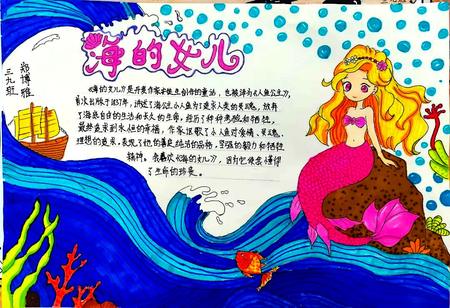 海的女儿
三九班
郑博雅
《海的女儿》是丹麦作家安徒生创作的童话，也被译为《人鱼公主》，
首次出版于1837年，讲述了海公主小人鱼为了追求人类的灵魂，放弃
了海底自由的生活和长久的生命，经历了种种考验和牺牲，
最终追求到永恒的幸福，作家讴歌了小人鱼对爱情、灵魂、
理想的追求，表现了她的善良纯洁的品格，坚强的毅力和牺牲
精神。我喜欢《海的女儿》，因为它使我懂得
了生命的珍贵。